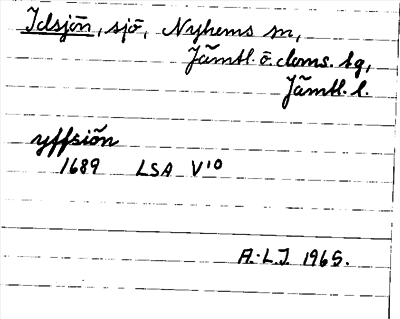 Idsjön, sjö, Nyhems sn,
Jämtl. ö. doms. tg,
Jämtl. l.
yffsiön
1689 LSA V¹⁰
A.-L.J. 1965.